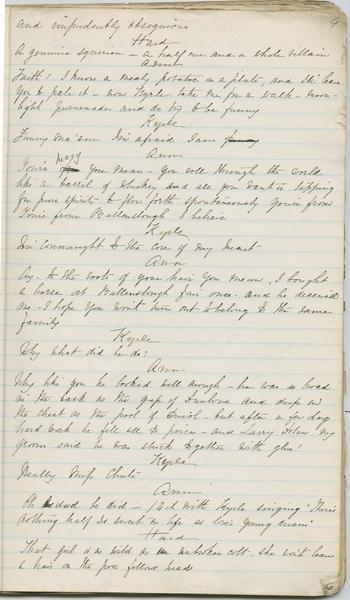 9
and impudently obsequious
Hard
A genuine squireen – a half sir and a whole villain
Ann
Faith! I know a mealy potatoe on a plate, and I'll leave
you to pale it – now Kyrle take me for a walk – moon-
light promenade and do try to be funny
Kyrle
Funny ma'am I'm afraid I am
Ann
You're foggy you mean – you roll through the world
like a barrel of whiskey and all you want is tapping
for pure spirits to flow forth spontaneously you're from
You're from Ballinslough I believe
Kyrle
I'm Connaught to the core of my heart
Ann
Ay – to the roots of your hair you mean, I bought
a horse at Ballinslough fair once – and he deceived
me – I hope you won't turn out to belong to the same
family
Kyrle
Why what did he do?
Ann
Why like you he looked well enough – he was as broad
in the back as the gap of Dunlova and deep in
the chest as the pool of – but after a few days
hard work he fell all to pieces – and Larry my
groom said he was stuck together with glue!
Kyrle
Really Miss Chute
Ann
Oh indeed he did – with Kyrle singing "There's
nothing half so sweet in life as love's young man"
Hard
That girl is as wild as unbroken colt. She won't leave
a hair on the poor fellows head